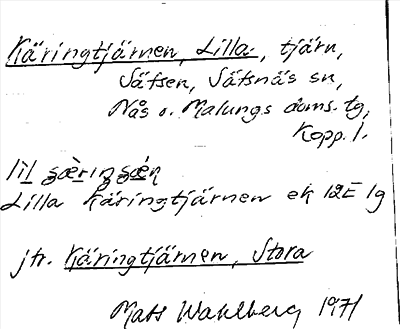 Käringtjärnen, Lilla, tjärn,
Säfsen, Säfsnäs sn,
Nås o. Malungs doms. tg,
Kopp. l.
Lilla Käringtjärnen ek 12E 1g
jfr. Käringtjärnen, Stora
Mats Wahlberg 1971